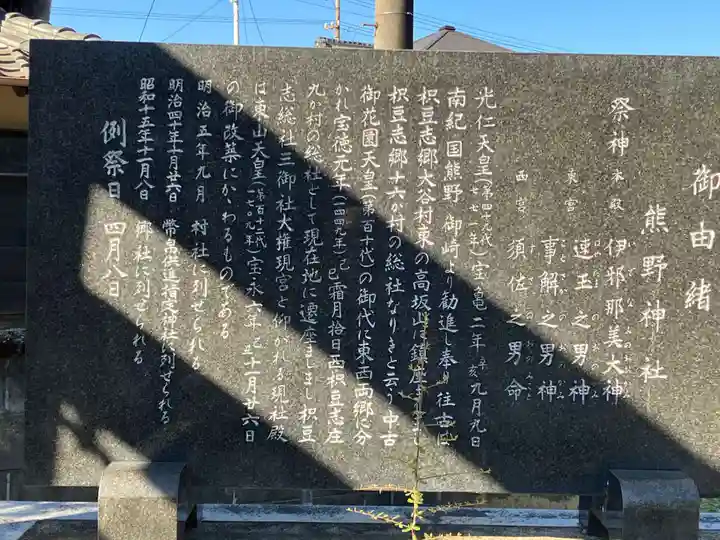 御由緒
熊野神社
祭神 本殿 伊邪那美大神
東宮 速玉之男神
事解之男神
西宮 須佐之男命
光仁天皇(第四十九代)(七七一年)宝亀二年辛亥九月九日
南紀国熊野 御崎より勧進し奉り往古は
枳豆志郷大谷村東の高坂山に鎮座しまし
枳豆志郷十六か村の総社なりきと云う中古
御花園天皇(第百十代)の御代に東西両郷に分
かれ宝徳元年(一四四九年)己巳霜月拾日西枳豆志庄
九か村の総社として現在地に遷座ましまし枳豆
志総社三御社大権現宮と仰がれる現社殿
は東山天皇(第百十二代)(一七〇九年)宝永六年己丑十一月廿六日
の御改築にかゝわるものである
明治五年九月 村社に列せられる
明治四十年十月廿六日 幣帛供進指定社に列せられる
昭和十五年十一月八日 郷社に列せられる
例祭日 四月八日